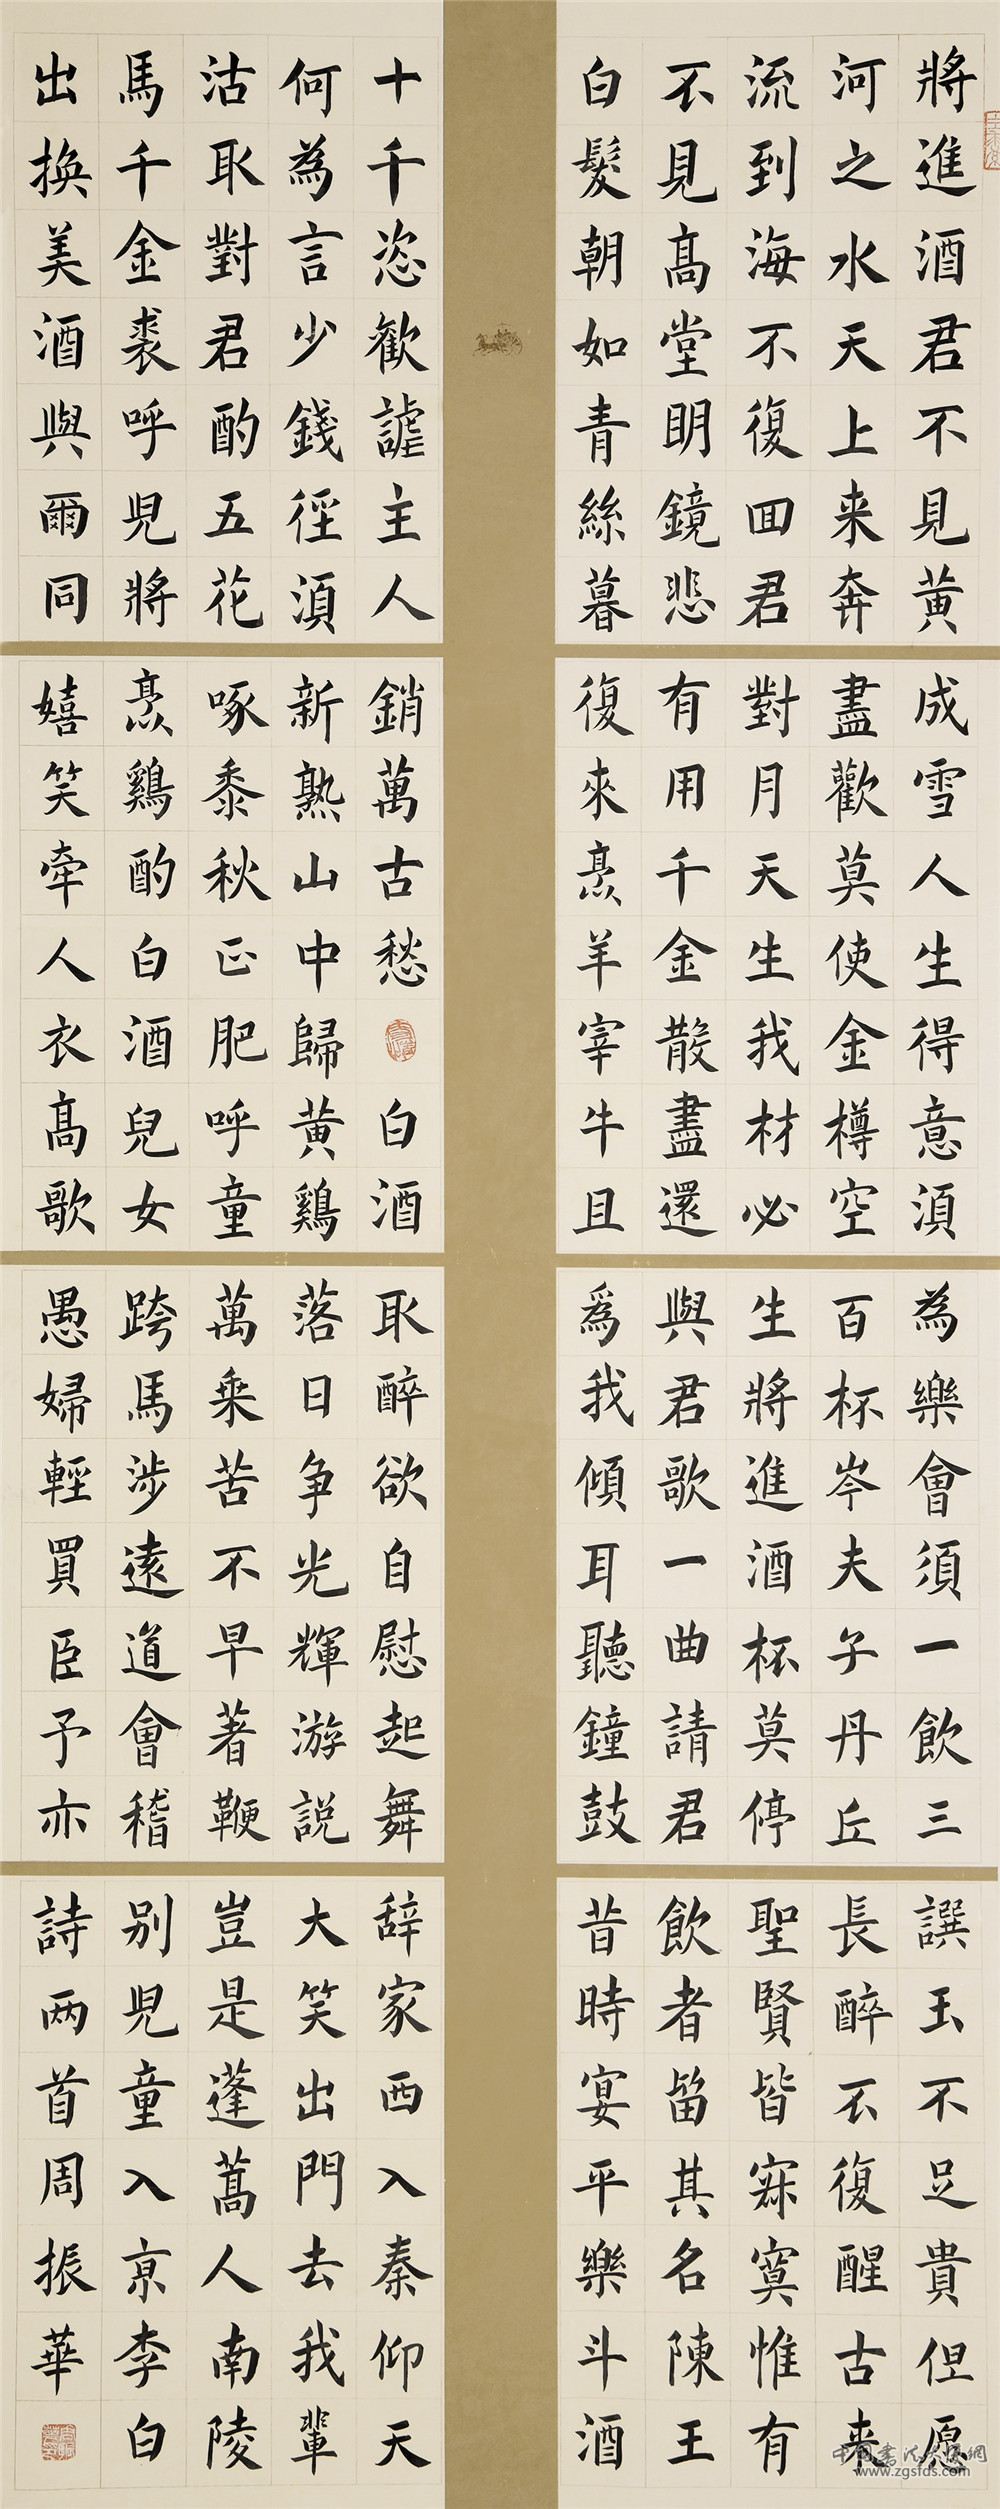 將進酒君不見黄
河之水天上来奔
流到海不復回君
不見高堂明鏡悲
白髮朝如青絲暮
成雪人生得意湏
盡歡莫使金樽空
對月天生我材必
有用千金散盡還
復來烹羊宰牛且
為樂會須一飲三
百杯岑夫子丹丘
生將進酒杯莫停
與君歌一曲請君
爲我傾耳聽鐘鼓
譔玉不足貴但愿
長醉不復醒古来
聖賢皆寂寞惟有
飲者留其名陳王
昔時宴平樂斗酒
十千恣歡謔主人
何為言少錢徑湏
沽取對君酌五花
馬千金裘呼兒將
出換美酒與爾同
銷萬古愁 白酒
新熟山中歸黄鷄
啄黍秋正肥呼童
烹鷄酌白酒兒女
嬉笑牽人衣高歌
取醉欲自慰起舞
落日争光輝游説
萬乘苦不早著鞭
跨馬涉遠道會稽
愚婦輕買臣予亦
辞家西入秦仰天
大笑出門去我輩
豈是蓬蒿人南陵
别兒童入京李白
詩两首周振華
www.zgsfds.com